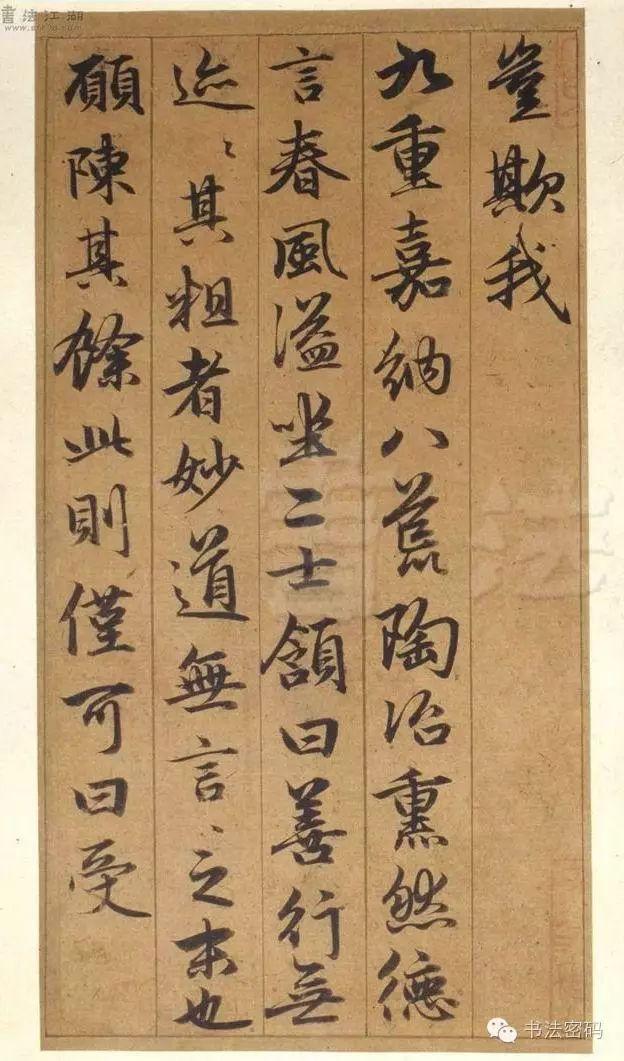 豈欺我
九重嘉納八荒陶冶熏然德
言春風溢坐二士頷曰善行無
迹〻其粗者妙道無言〻之末也
願陳其餘此則僅可曰受
書法江湖
书法
书法密码